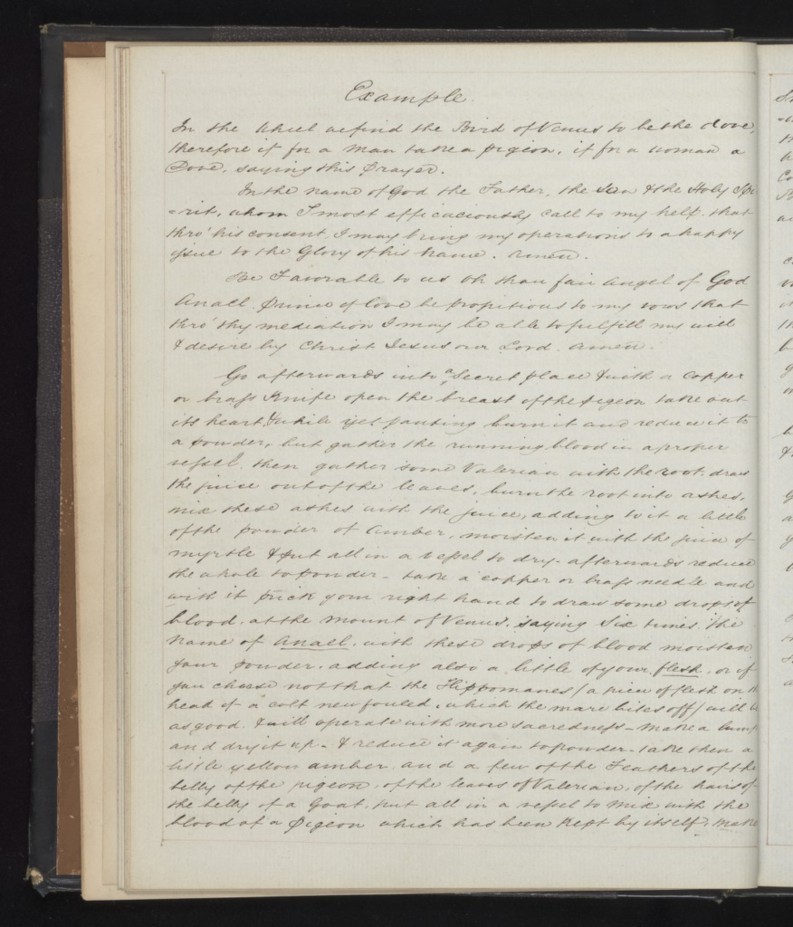 Example.
In the Wheel we find the Bird of Venus to be the dove,
therefore if for a man take a pigeon, if for a woman a
Dove, saying this Prayer.
In the name of God the Father, the Son & the Holy Spi
-rit, whom I most efficaciously call to my help, that
thro' his consent, I may bring my operations to a happy
issue to the Glory of his Name. Amen.
Be Favorable to us oh thou fair Angel of God
Anael, Prince of Love be propitious to my vows that
thro' thy mediation I may be able to fulfill my will
& desire by Christ Jesus our Lord. Amen.
Go afterwards into a Secret place & with a Copper
or brass Knife open the breast of the pigeon take out
its heart, & while yet panting burn it and reduce it to
a powder, but gather the running blood in a proper
vessel. then gather some Valerian with the root, draw
the juice out of the leaves, burn the root into ashes,
mix these ashes with the juice, adding to it a little
of the powder of Amber, moisten it with the juice of
myrtle & put all in a vessel to dry. afterwards reduce
the whole to powder. take a copper or brass needle and
with it prick your right hand to draw some drops of
blood, at the mount of Venus, saying Six times the
Name of Anael, with these drops of blood moisten
your powder, adding also a little of your flesh, or if
you choose not that the Hippomanes (a piece of flesh on th
head of a colt new fouled, which the mare bites off) will b
as good. & will operate with more sacredness. make a lump
and dry it up. & reduce it again to powder. take then a
little yellow amber, and a few of the Feathers of the
belly of the pigeon, of the leaves of Valerian, of the hairs of
the belly of a Goat, put all in a vessel to mix with the
blood of a Pigeon which has been Kept by itself; make